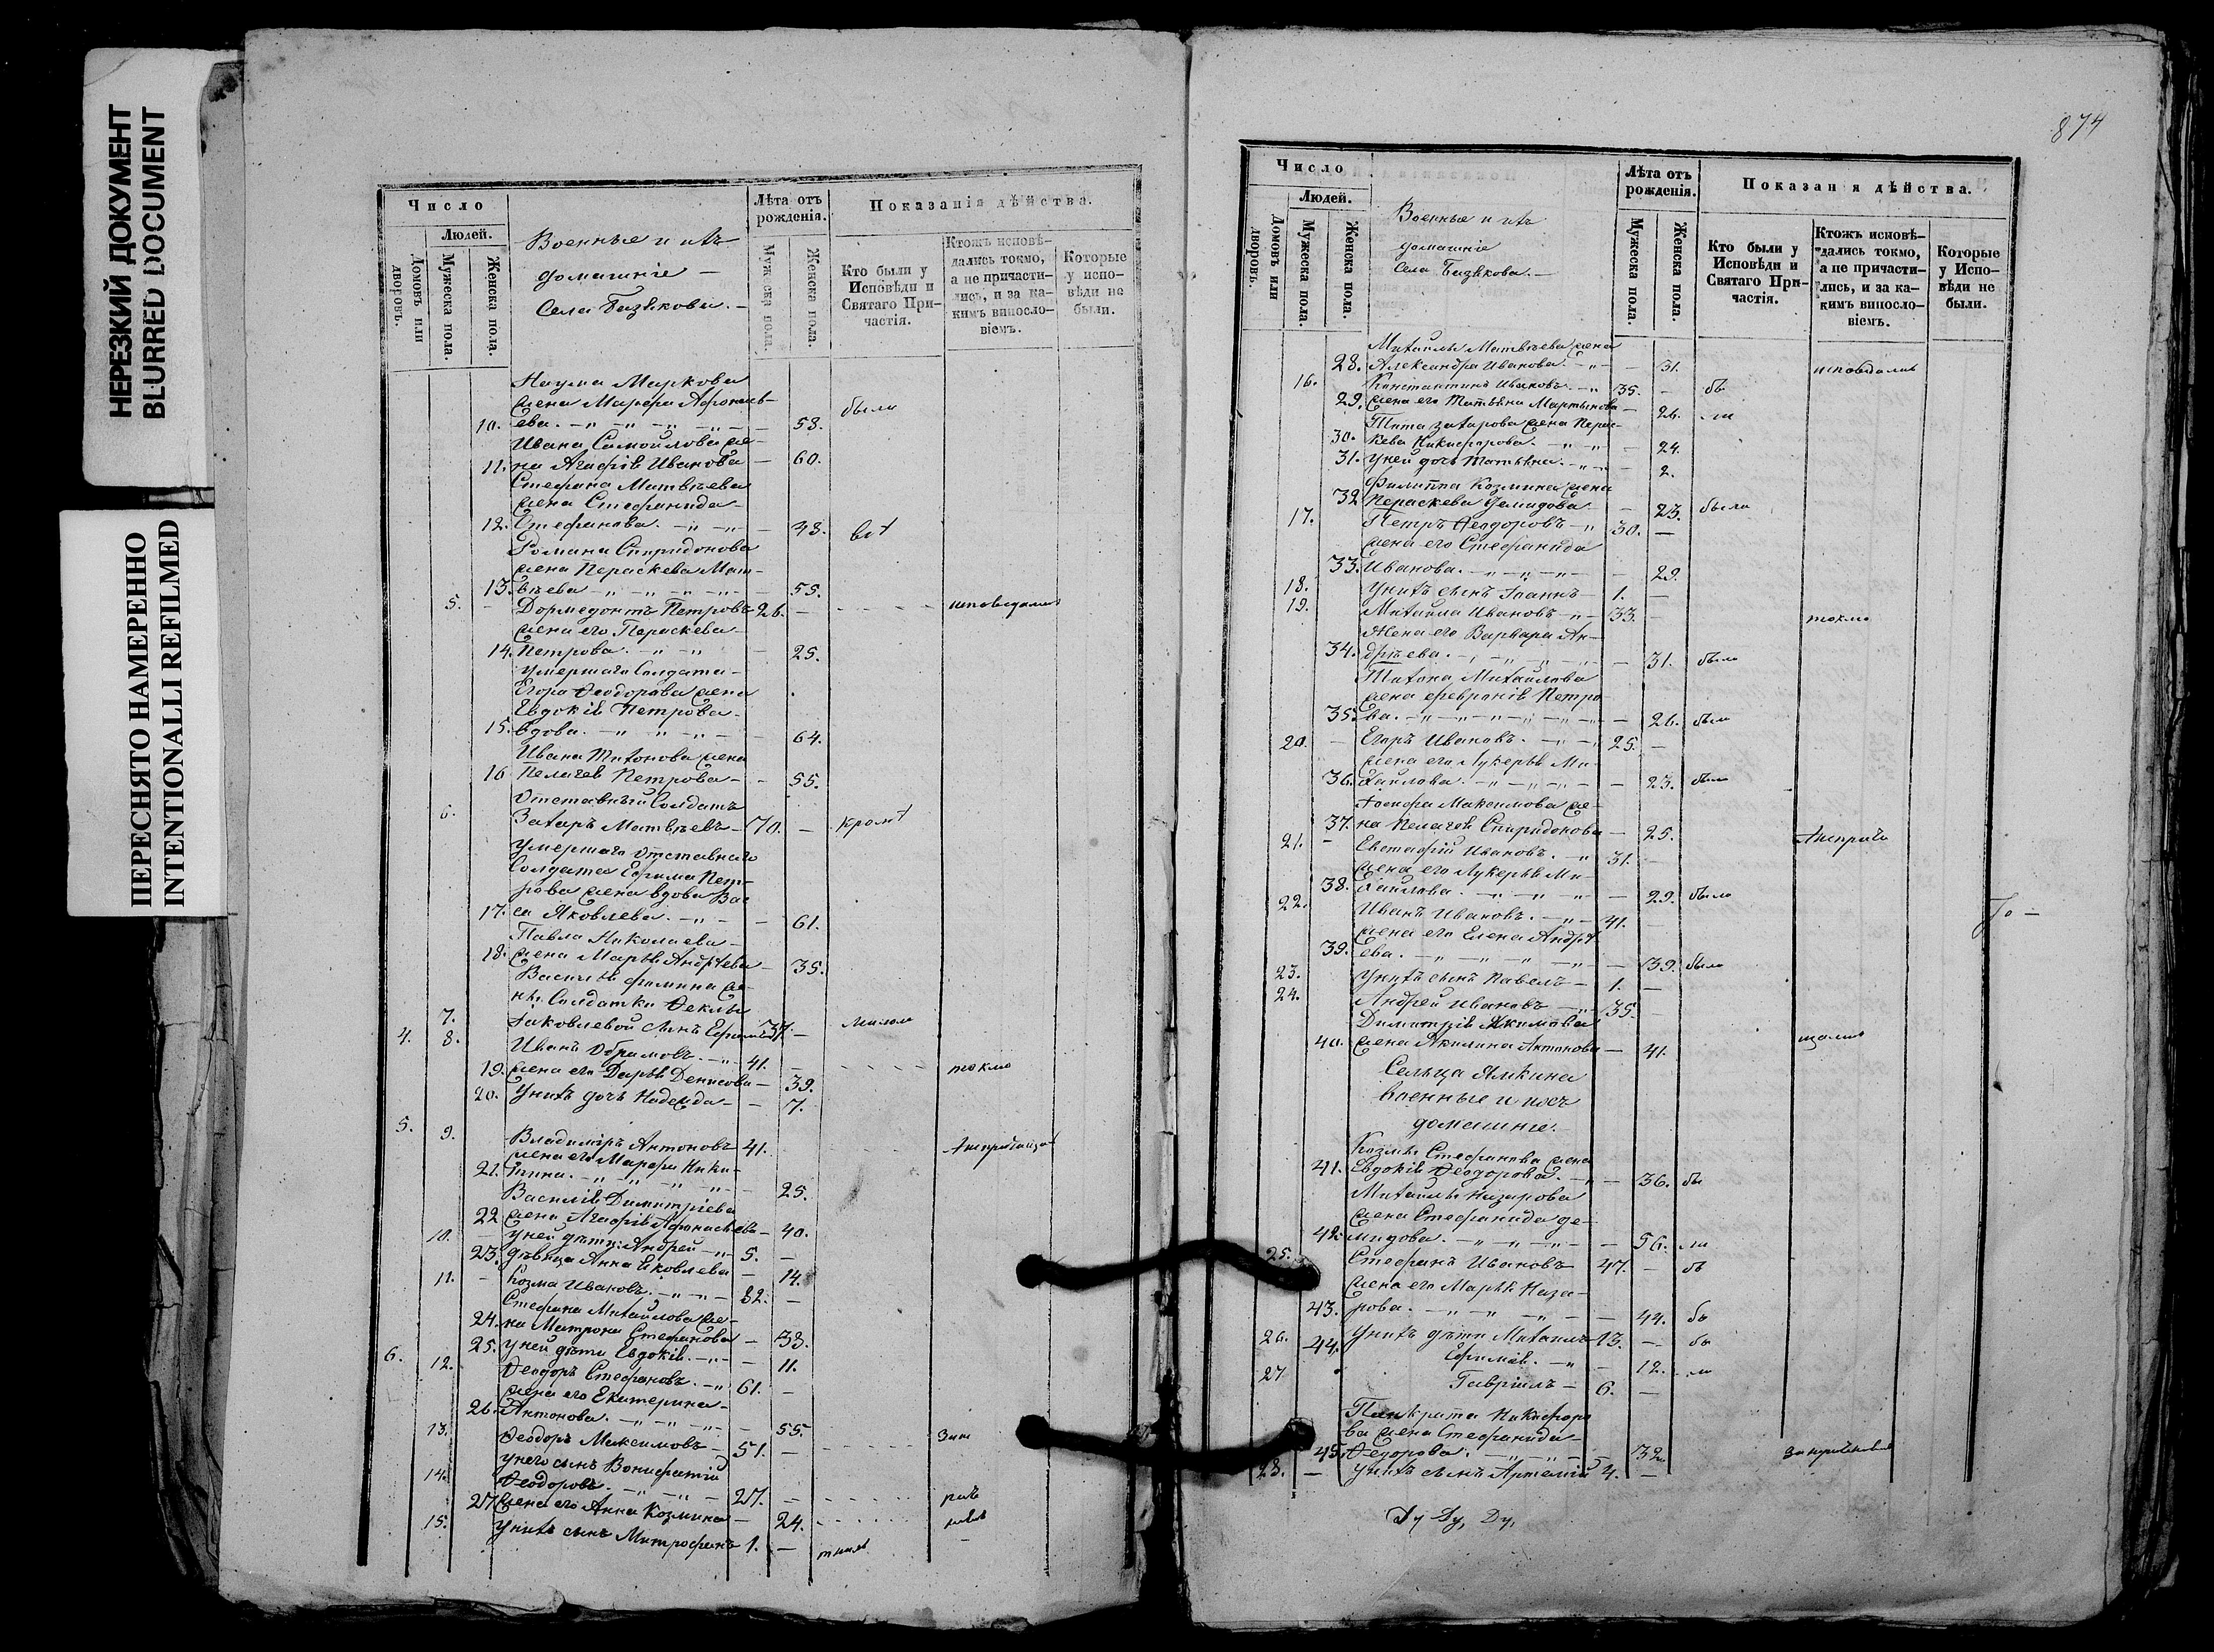 НЕРЕЗКИЙ ДОКУМЕНТ
BLURRED DOCUMENT
ПЕРЕСНЯТО НАМЕРЕННО
INTENTIONALLI REFILMED
Число
Людей.
Домовъ или дворовъ.
Мужеска пола.
Женска пола.
Военные и ихъ
домашніе —
Села Бизюкова. —
Лѣта отъ рожденія.
Мужеска пола.
Женска пола.
Показанія дѣйства.
Кто были у Исповѣди и Святаго Причастія.
Ктожъ исповѣдались токмо, а не причастились, и за какимъ винословіемъ.
Которые у исповѣди не были.
Наума Маркова
жена Марѳа Аѳонась- были
10. ева. — 58.
Ивана Самойлова же-
11. на Агафія Иванова — 60.
Стефана Матвѣева
жена Стефанида
12. Стефанова. — 48.
Романа Спиридонова
жена Параскева Мат-
13. вѣева — 55.
5. — Дормедонтъ Петровъ 26. — исповедались
жена его Параскева
14. Петрова. — 25.
Умершаго Солдата
Егора Ѳеодорова жена
Евдокія Петрова
15. вдова. — 64.
Ивана Титонова жена
16 Пелагея Петрова — 55.
Отставный Солдатъ
6. Захаръ Матвѣевъ — 70. —
Умершаго Отставнаго
Солдата Ефима Пет-
рова жена вдова Вас
17. са Яковлева. — 61.
Павла Николаева
18. жена Марья Андреева — 35.
Василія Фомина же-
ны Солдатки Ѳеклы
7. Iаковлевой сынъ Ефимъ 37. —
4. 8. Иванъ Абрамовъ. — 41. — токмо
19. жена его Дарья Денисова — 39.
20. У нихъ дочь Надежда — 7.
5. 9. Владиміръ Антоновъ 41.
жена его Марѳа Ники-
21. тина. — 25.
Василія Димитріева
22 жена Агафія Аѳанасьева — 40.
10. — у ней дѣти: Андрей — 5. —
23. дѣвица Анна Яковлева — 14.
11. — Козма Ивановъ. — 32. —
Стефана Михайлова же-
24. на Матрона Стефанова — 33.
25. у ней дѣти Евдокія — 11.
6. 12. Ѳеодоръ Стефановъ. — 61. —
жена его Екатерина
26. Антонова. — 55.
13. Ѳеодоръ Максимовъ — 51. —
у него сынъ Вонифатій
14. Ѳеодоровъ. — 27. —
27. жена его Анна Козмина — 24.
15. У нихъ сынъ Митрофанъ 1. —
874
Число
Людей.
Домовъ или дворовъ.
Мужеска пола.
Женска пола.
Военные и ихъ
домашніе
Села Бизюкова. —
Лѣта отъ рожденія.
Мужеска пола.
Женска пола.
Показан я дѣйства.
Кто были у Исповѣди и Святаго Причастія.
Ктожъ исповѣдались токмо, а не причастились, и за какимъ винословіемъ.
Которые у Исповѣди не были.
Михаила Матвѣева жена
28. Александра Иванова. — 31. исповедались
16. Константинъ Ивановъ. — 35. — бы
29. жена его Татьяна Мартынова — 26. ли
Тита Захарова жена Перас-
30. кева Никифорова. — 24.
31. у ней дочь Татьяна. — 2.
Филиппа Козмина жена
32 Пераскева Демидова — 23. были
17. Петръ Ѳеодоровъ — 30. —
жена его Стефанида
33. Иванова. — 29.
18. У нихъ сынъ Iоаннъ — 1. —
19. Михаила Ивановъ — 33. — токмо
Жена его Варвара Ан-
34. дрѣева. — 31. была
Титона Михайлова
жена Февронія Петро-
35. ва. — 26. была
20. — Егоръ Ивановъ. — 25. —
жена его Лукерья Ми-
36. хайлова. — 23. была
Iосифа Максимова же-
37. на Пелагея Спиридонова — 25.
21. — Евстафій Ивановъ. — 31. —
жена его Лукерья Ми-
38. хайлова. — 29. была
22. Иванъ Ивановъ. — 41. —
жена его Елена Андрѣ
39. ева. — 39. была
23. У нихъ сынъ Павелъ — 1. —
24. Андрей Ивановъ — 35. —
Димитрія Якимова
40. жена Акилина Антонова — 41.
Сельца Ямкина
военные и ихъ
домашніе.
Козмы Стефанова жена
41. Евдокія Ѳеодорова. — 36. бы
Михаилы Назарова
жена Стефанида Де-
42. мидова. — 56. ли
25. Стефанъ Ивановъ 47. — бы
жена его Марья Наза-
43. рова. — 44. бы
26. У нихъ дѣти Михаилъ 13. — бы
44. Ефимія. — 12. ли
27 Гавріилъ — 6. —
Панкрата Никифоро
ва жена Стефанида
45. Ѳедорова. — 32.
28. — У нихъ сынъ Артемій 4. —